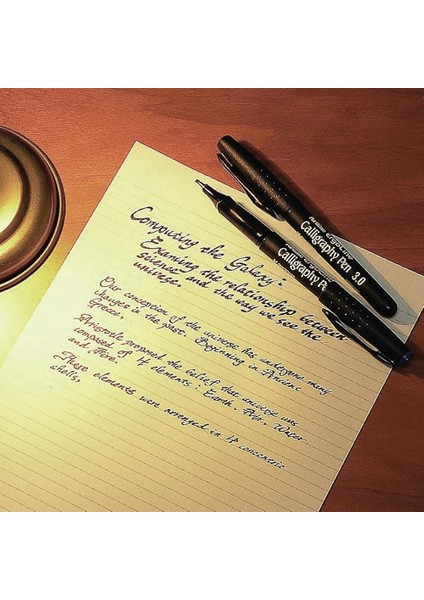 Computing the Galaxy:
Examining the relationship between
science and the way we see the
universe.
Our conception of the universe has undergone many
changes in the past. Beginning in Ancient
Greece,
Aristotle proposed the belief that universe was
composed of 4 elements: Earth, Air, Water
and Fire.
These elements were arranged in 4 concentric
shells,
Artline ErgoLine
Calligraphy Pen 3.0
Calligraphy P